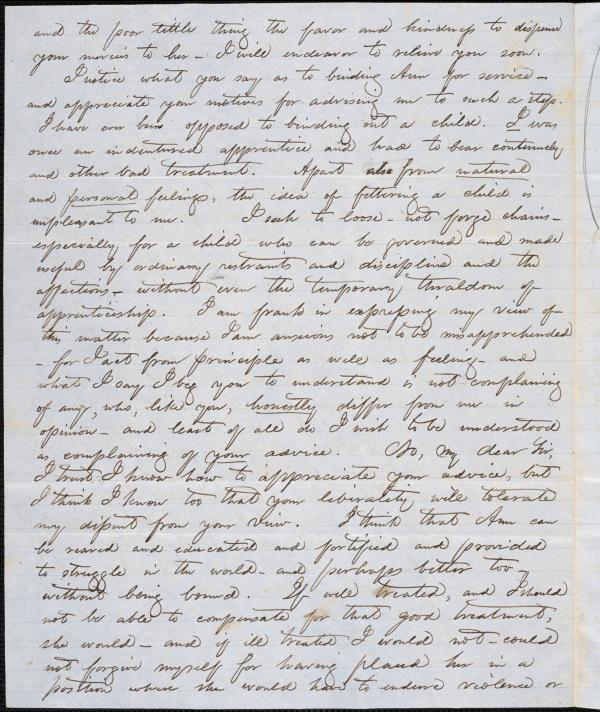 and the poor little thing the favor and kindness to dispense
your mercies to her - I will endeavor to relieve you soon.
I notice what you say as to binding Ann for service -
and appreciate your motives for advising me to such a step.
I have ever been opposed to binding out a child. I was
once an indentured apprentice and had to bear contumely
and other bad treatment. Apart from natural
and personal feelings, the idea of fettering a child is
unpleasant to me. I seek to loose - not forge chains -
especially for a child who can be governed and made
useful by ordinary restraints and discipline and the
affections - without even the temporary thraldom of
apprenticeship. I am frank in expressing my view of
this matter because I am anxious not to be misapprehended
- for I act from principle as well as feeling - and
what I say I beg you to understand is not complaining
of any, who, like you, honestly differ from me in
opinion - and least of all do I wish to be understood
as complaining of your advice. No, my dear Sir,
I trust I know how to appreciate your advice, but
I think I know too that your liberality will tolerate
my disent from your view. I think that Ann can
be reared and educated and fortified and provided
to struggle in the world - and perhaps better too -
without being bound. If well treated, and I should
not be able to compensate for that good treatment,
she would - and if ill treated I would not - could
not forgive myself for having placed her in a
position where she would have to endure violence or